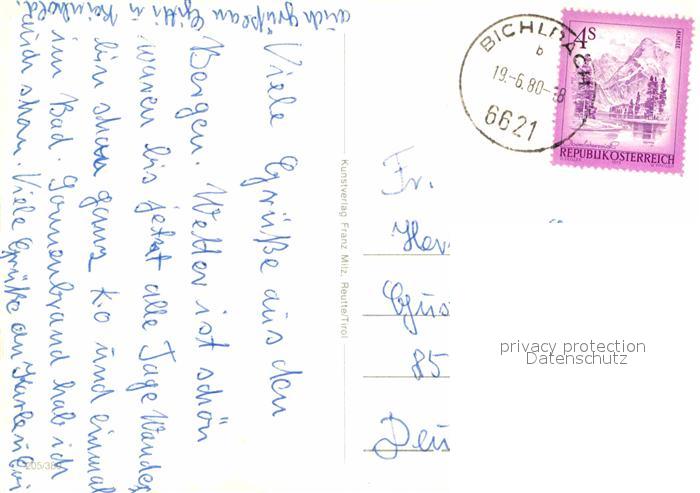 Viele Grüße aus den
Bergen. Wetter ist schön
waren bis jetzt alle Tage Wander
bin schon ganz k.o und einmal
im Bad. Sonnenbrand hab ich
auch schon. Viele Grüße an
auch Grüße an Gitti u Reinhold.
Kunstverlag Franz Milz, Reutte/Tirol
205/38
BICHLBACH
b
19.-6.80-
6621
4S
ALMSEE
REPUBLIK ÖSTERREICH
Fr.
Her
Gus
85
Deu
privacy protection
Datenschutz